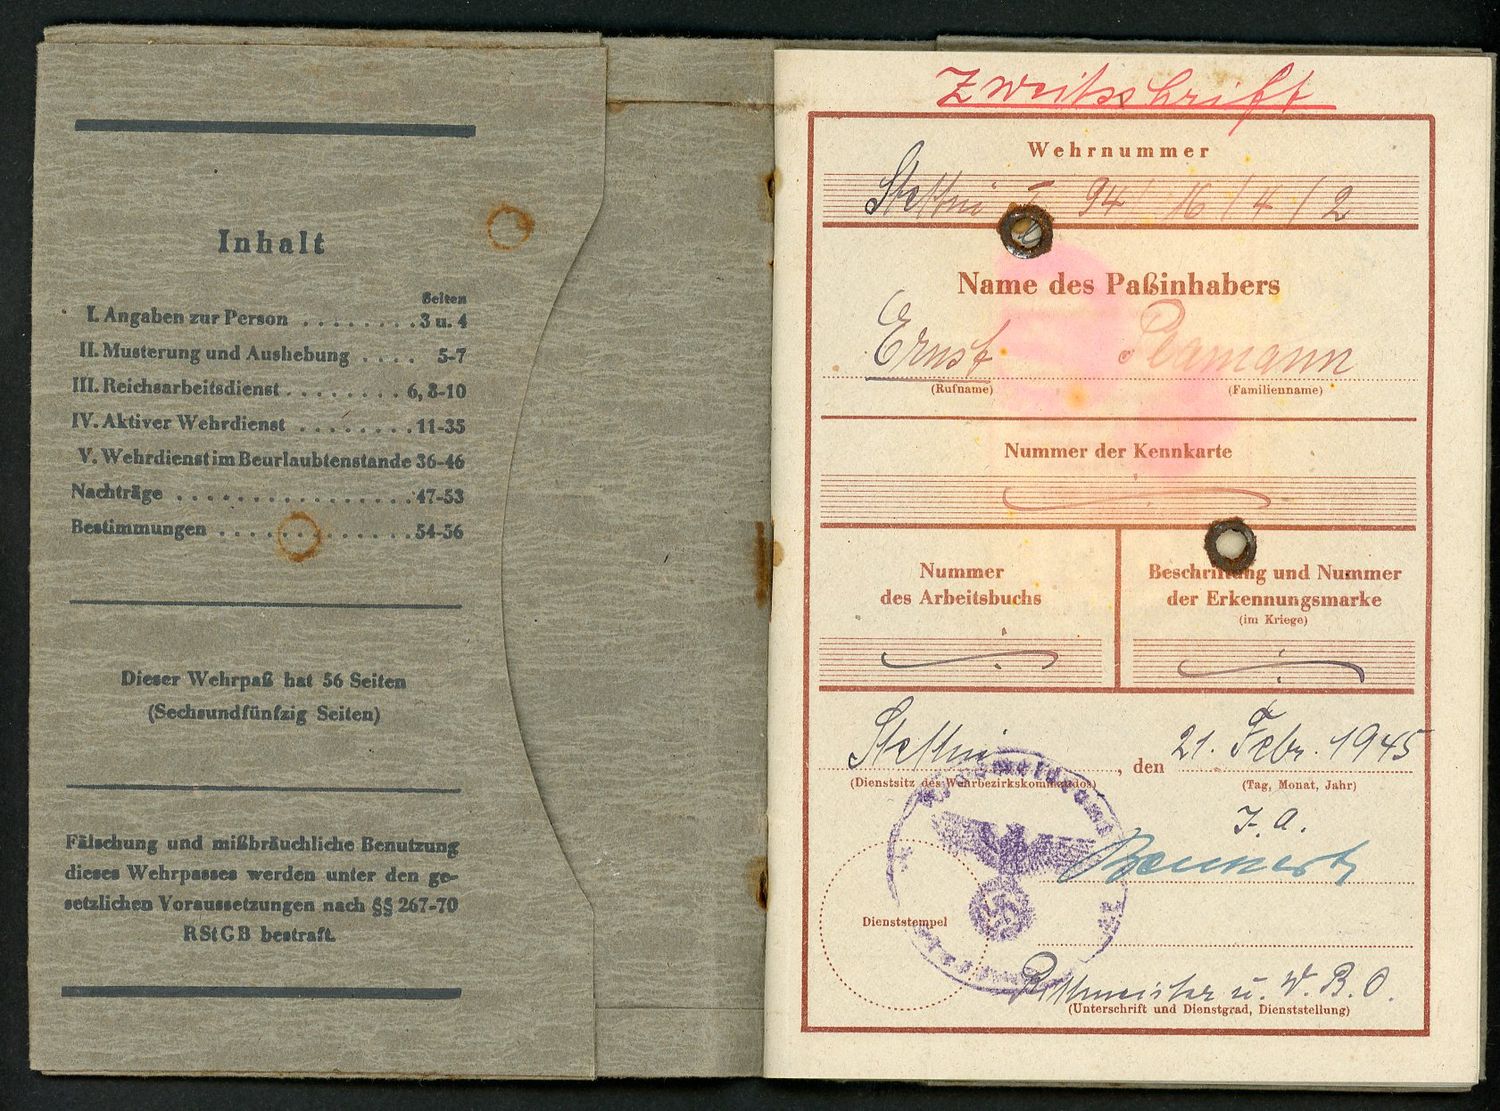 Inhalt
Seiten
I. Angaben zur Person ........3 u. 4
II. Musterung und Aushebung .... 5-7
III. Reichsarbeitsdienst ....... 6, 8-10
IV. Aktiver Wehrdienst ........11-35
V. Wehrdienst im Beurlaubtenstande 36-46
Nachträge .................47-53
Bestimmungen ..............54-56
Dieser Wehrpaß hat 56 Seiten
(Sechsundfünfzig Seiten)
Fälschung und mißbräuchliche Benutzung
dieses Wehrpasses werden unter den ge-
setzlichen Voraussetzungen nach §§ 267-70
RStGB bestraft.
Zweitschrift
Wehrnummer
Stettin I 94/16/4/2
Name des Paßinhabers
Ernst
(Rufname) (Familienname)
Nummer der Kennkarte
Nummer
des Arbeitsbuchs
Beschriftung und Nummer
der Erkennungsmarke
(im Kriege)
Stettin, den 21. Febr. 1945
(Dienstsitz des Wehrbezirkskommandos) (Tag, Monat, Jahr)
I. A.
Dienststempel
Rittmeister u. W. B. O.
(Unterschrift und Dienstgrad, Dienststellung)